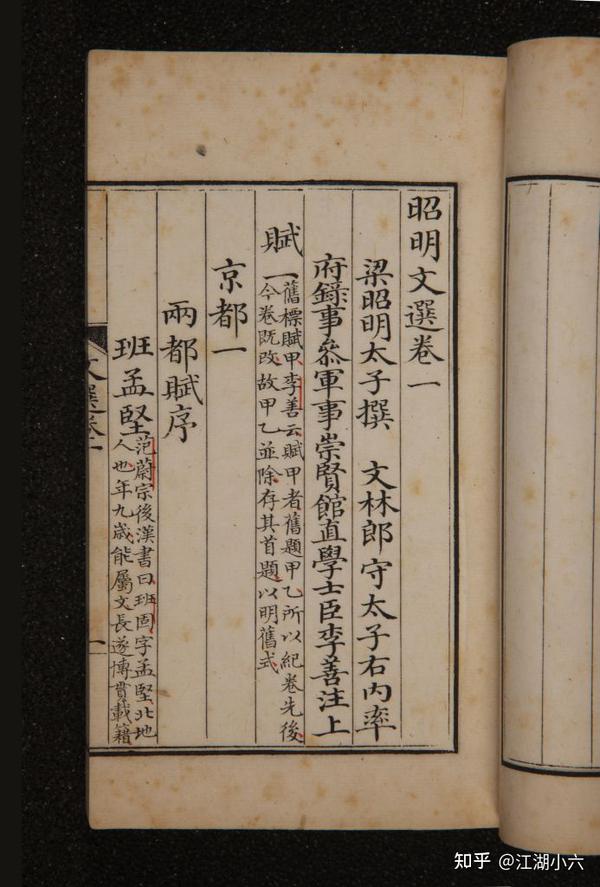 昭明文選卷一
梁昭明太子撰　文林郎守太子右內率
府錄事參軍事崇賢館直學士臣李善注上
賦
舊標賦甲李善云賦甲者舊題甲乙所以紀卷先後
今卷既改故甲乙並除存其首題以明舊式
京都一
兩都賦序
班孟堅
范蔚宗後漢書曰班固字孟堅北地
人也年九歲能屬文長遂博貫載籍
文選卷一
一
知乎 @江湖小六